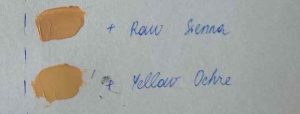 + Raw Sienna
+ Yellow Ochre